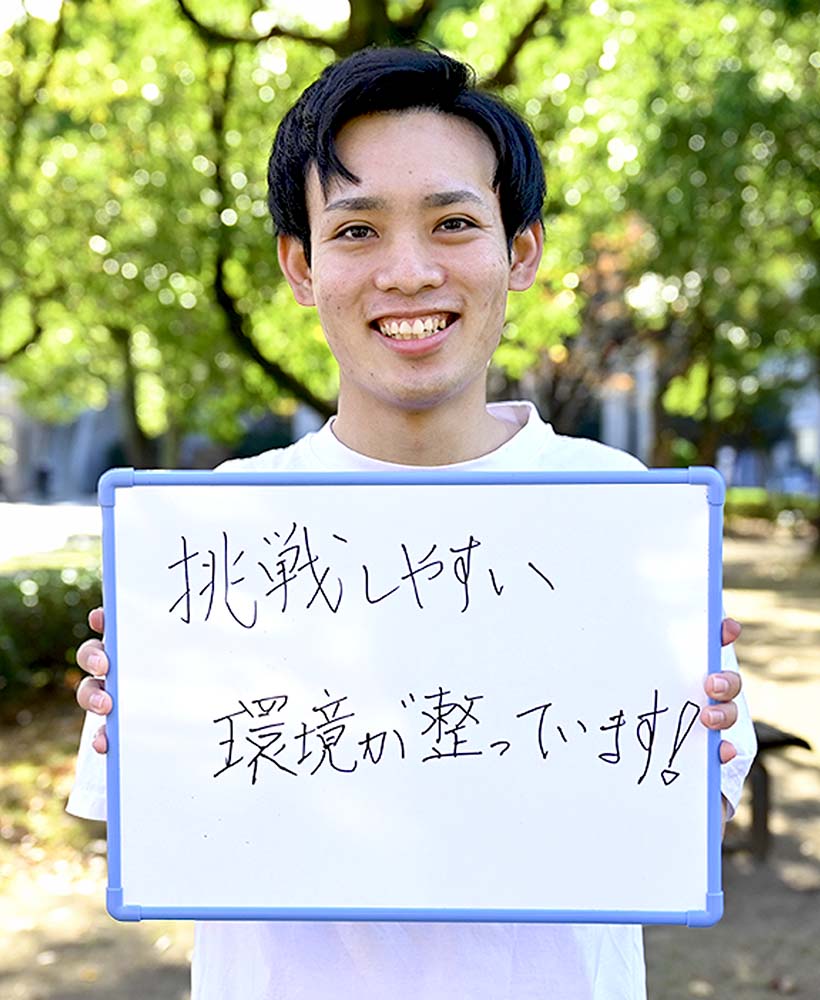 挑戦しやすい
環境が整っています!